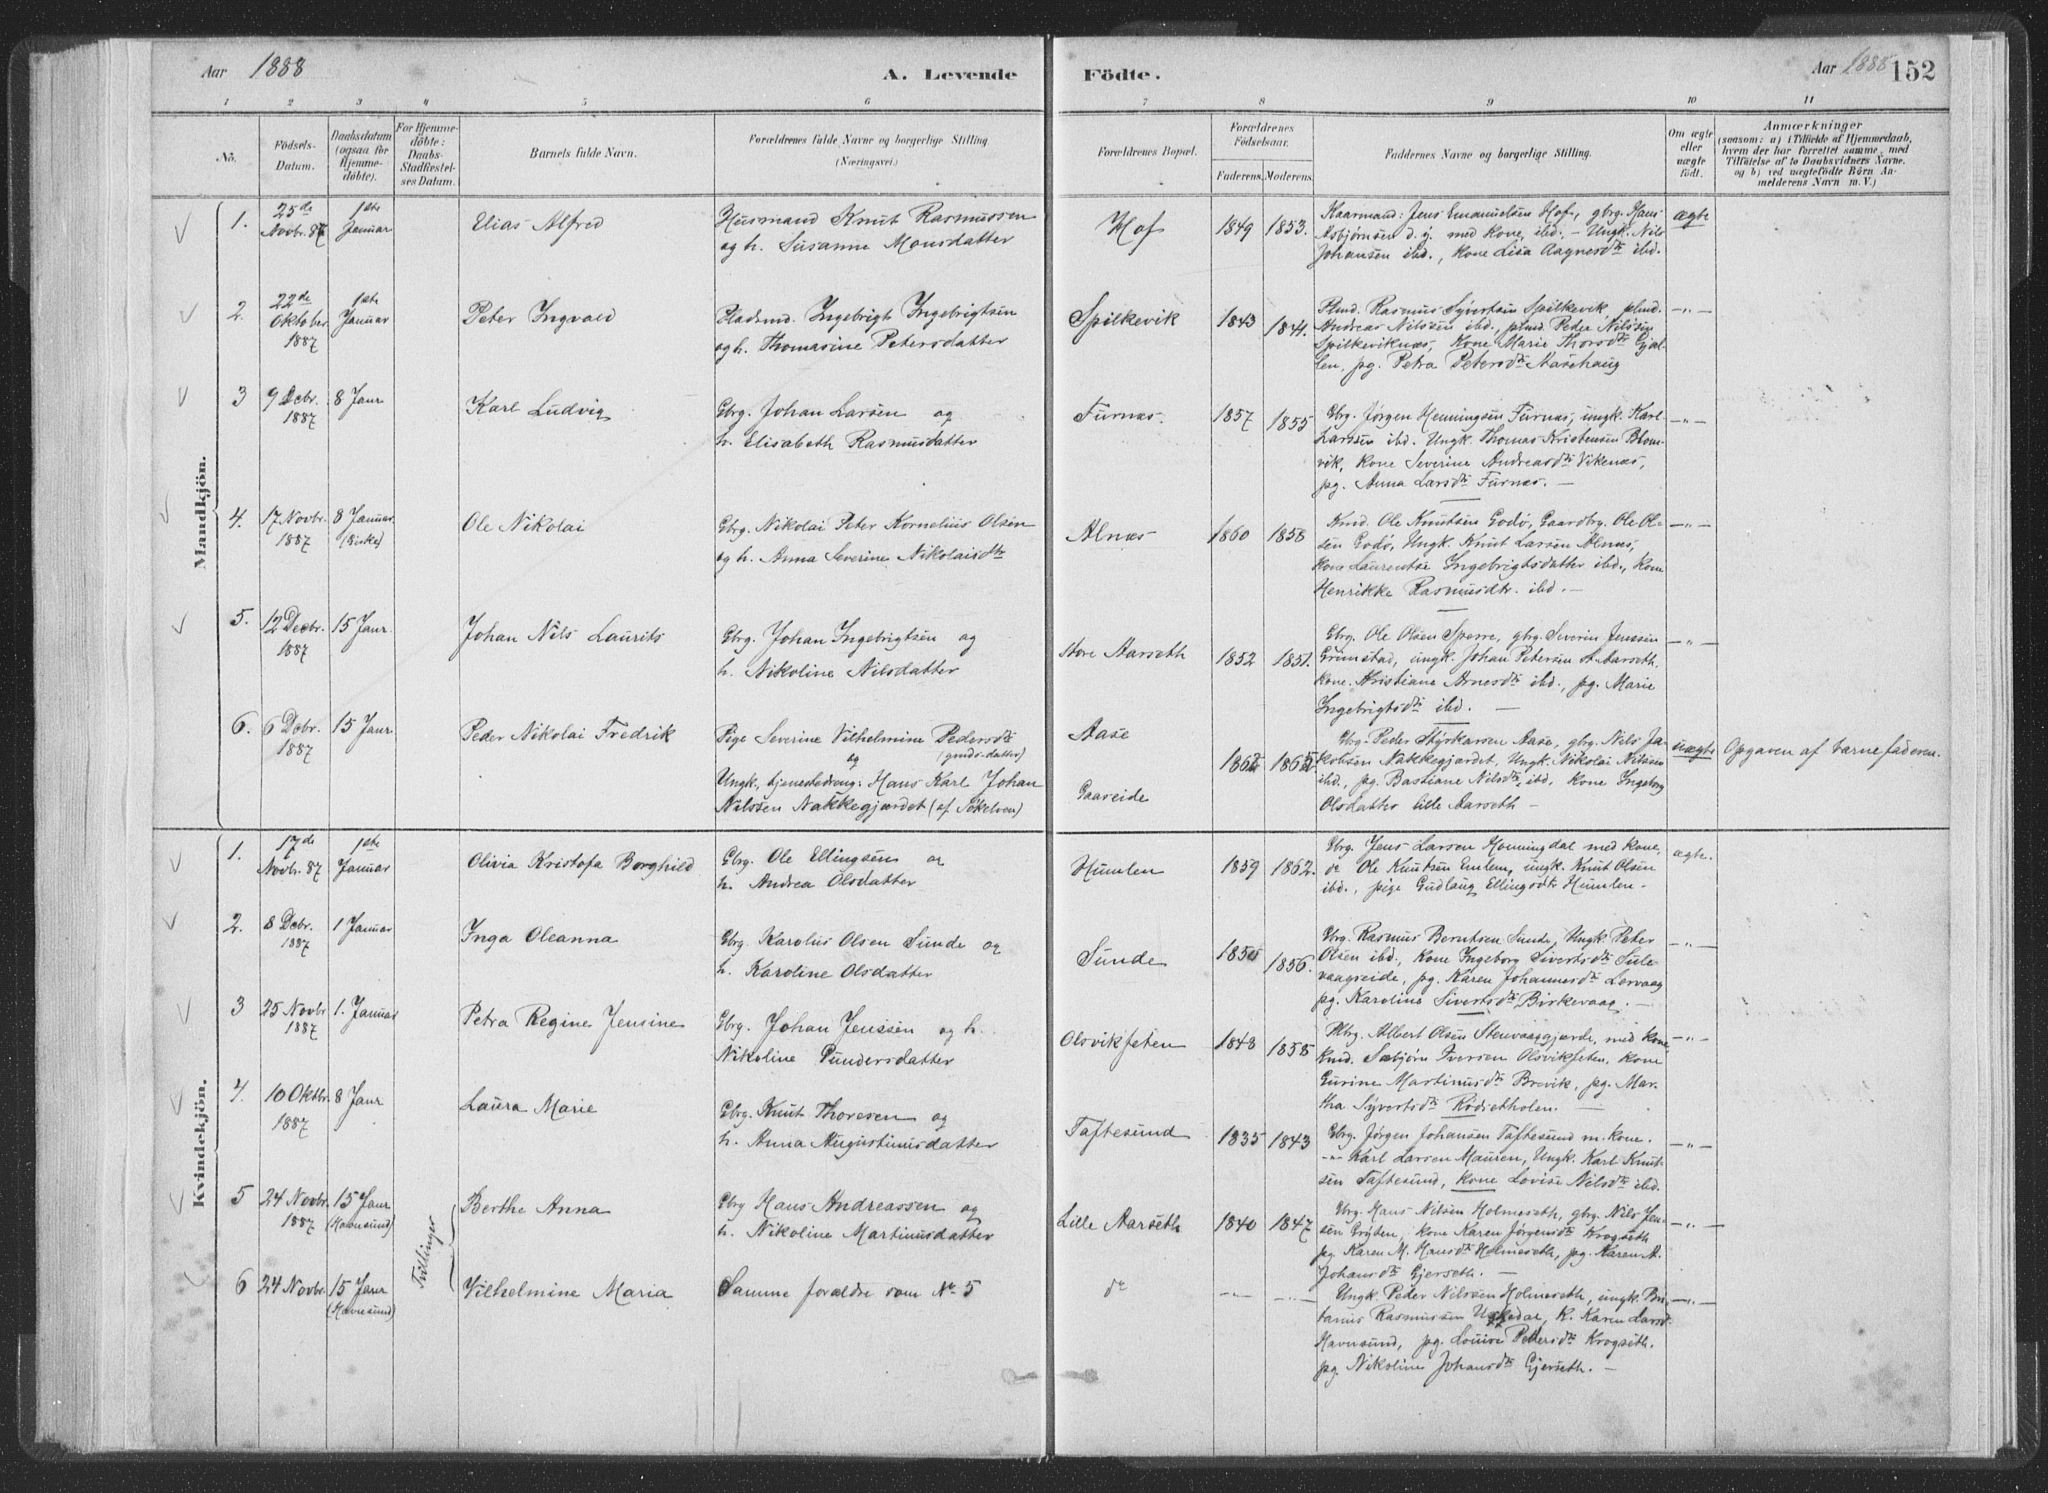 Aar 1888
A. Levende
Födte.
Aar 1888
152
1 2 3 4 5 6 7 8 9 10 11
No.
Födsels-
Datum.
Daabsdatum
(ogsaa for
Hjemme-
döbte).
For Hjemme-
döbte:
Daabs-
Stadfæstel-
ses Datum.
Barnets fulde Navn.
Forældrenes fulde Navne og borgerlige Stilling
(Næringsvei.)
Forældrenes Bopæl.
Forældrenes
Födselsaar.
Faderens. Moderens.
Faddernes Navne og borgerlige Stilling.
Om ægte
eller
uægte
födt.
Anmærkninger
(saasom: a) i Tilfælde af Hjemmedaab,
hvem der har forrettet samme, med
Tilföielse af to Daabsvidners Navne.
og b) ved uægtefödte Börn An-
melderens Navn m. V.)
Mandkjön.
1.
25de
Novbr. 87
1ste
Januar
Elias Alfred
Husmand Knut Rasmussen
og h. Susanne Monsdatter
Hof
1849 1853.
Kaarmand: Jens Emanuelsen Hof, gbrg. Hans
Asbjørnsen d. y. med kone, ibd., – Ungk. Nils
Johansen ibd., kone Lisa Aagnesdtr ibd.
ægte
2.
22de
Oktober
1887
1ste
Januar
Peter Ingvald
Pladsmd. Ingebrigt Ingebrigtsen
og h. Thomasine Petersdatter
Spilkevik
1843 1841.
Plmd. Rasmus Syvertsen Spilkevik, plmd.
Andreas Nilssen ibd., plmd. Peter Nilssen
Spilkeviknæs, Kone Marie Thorsdtr Gjøl-
len, pg. Petra Petersdtr Aasehaug
–"–
3
9 Decbr.
1887
8 Janr
Karl Ludvig
Gbrg. Johan Larsen og
h. Elisabeth Rasmusdatter
Furnæs.
1857 1855
Gbrg. Jørgen Henningsen Furnæs, ungk. Karl
Larssen ibd. Ungk. Thomas Kristensen Blom-
vik, kone Severine Andreasdtr Vikenæs,
pg. Anna Larsdtr Furnæs. –
–"–
4.
17 Novbr.
1887
8 Januar
(Giske)
Ole Nikolai
Gbrg. Nikolai Peter Kornelius Olsen
og h. Anna Severine Nikolaisdtr
Alnæs
1860 1858
Kmd. Ole Knutsen Godø, Gaardbrg. Ole Ol-
sen Godø, Ungk. Knut Larsen Alnæs,
kone Laurentse Ingebrigtsdatter ibd., kone
Henrikke Rasmusdtr. ibd. –
–"–
5.
12 Decbr.
1887
15 Janr.
Johan Nils Laurits
Gbrg. Johan Ingebrigtsen og
h. Nikoline Nilsdatter
Store Aarseth
1852 1851.
Gbrg. Ole Olsen Sperre, gbrg. Severin Jenssen
Grimstad, ungk. Johan Petersen St. Aarseth.
kone. Kristiane Arnesdtr ibd., pg. Marie
Ingebrigtsdtr ibd. –
–"–
6.
6 Decbr.
1887
15 Janr.
Peder Nikolai Fredrik
Pige Severine Vilhelmine Pedersdtr
og (grmds.-datter)
Ungk., tjenestedreng: Hans Karl Johan
Nilssen Nakkegjærdet (af Sökelven)
Aase
Gaareide
1862 1865
Gbrg. Peder Styrkarsen Aase, gbrg. Nels Ja-
kobsen Nakkegjærdet, Ungk. Nikolai Nilssen
ibd., pg. Bastiane Nilsdtr. ibd, kone Ingeborg
Olsdatter Lille Aarseth –
uægte
Opgaven af barnefaderen.
Kvindekjön.
1.
17de
Novbr. 87
1ste
Januar
Olivia Kristofa Borghild
Gbrg. Ole Ellingsen og
h. Andrea Olsdatter
Humlen
1859 1862.
Gbrg. Jens Larsen Honningdal med kone,
do Ole Knutsen Emlem, ungk. Knut Olsen
ibd., pige Gudlaug Ellingsdtr Humlen –
ægte.
2.
8 Decbr.
1887
1 Januar
Inga Oleanna
Gbrg. Karolus Olsen Sunde og
h. Karoline Olsdatter
Sunde
1850 1856.
Gbrg. Rasmus Berntsen Sunde, Ungk. Peter
Olsen ibd., kone Ingeborg Sivertsdtr Sule-
vaagreide, pg. Karen Johannesdtr Lervaag
pg. Karoline Sivertsdtr Birkevaag. –
–"–
3
25 Novbr
1887
1. Januar
Petra Regine Jensine
Gbrg. Johan Jenssen og h.
Nikoline Pundersdatter
Olsvikfeten
1848 1858
Gbrg. Albert Olsen Stenvaaggjærde, med kone,
kmd. Sæbjørn Iversen Olsvikfeten, kone
Gurine Martinusdtr Brevik, pg. Mar-
tha Syvertsdtr Rödsetholen. –
–"–
4.
10 Oktbr.
1887
8 Janr
Laura Marie
Gbrg. Knut Thoresen og
h. Anna Augustinusdatter
Taftesund
1835 1843
Gbrg. Jørgen Johansen Taftesund m. kone.
–"– Karl Larsen Mauren, Ungk. Karl Knut-
sen Taftesund, kone Lovise Nilsdtr ibd.
–"–
5
24 Novbr.
1887
15 Janr
(Havnsund)
Tvillinger
Berthe Anna
Gbrg Hans Andreassen og
h. Nikoline Martinusdatter
Lille Aarseth
1840 1847
Gbrg. Hans Nilsen Holmeseth, gbrg. Nils Jen-
sen Gryten, kone Karen Jørgensdtr Krogseth
pg. Karen M. Hansdtr Holmeseth, pg. Karen A.
Johansdtr Gjerseth. –
–"–
6
24 Novbr.
15 Janr
(Havnsund)
Vilhelmine Maria
Samme forældre som No 5
do
–"– –"–
Ungk. Peder Nilssen Holmeseth, ungk. Be-
tanius Rasmussen Urkedal, k. Karen Larsd.
Havnsund, pg. Lovise Petersdtr Krogseth.
pg. Nikoline Johansdtr Gjerseth. –
–"–